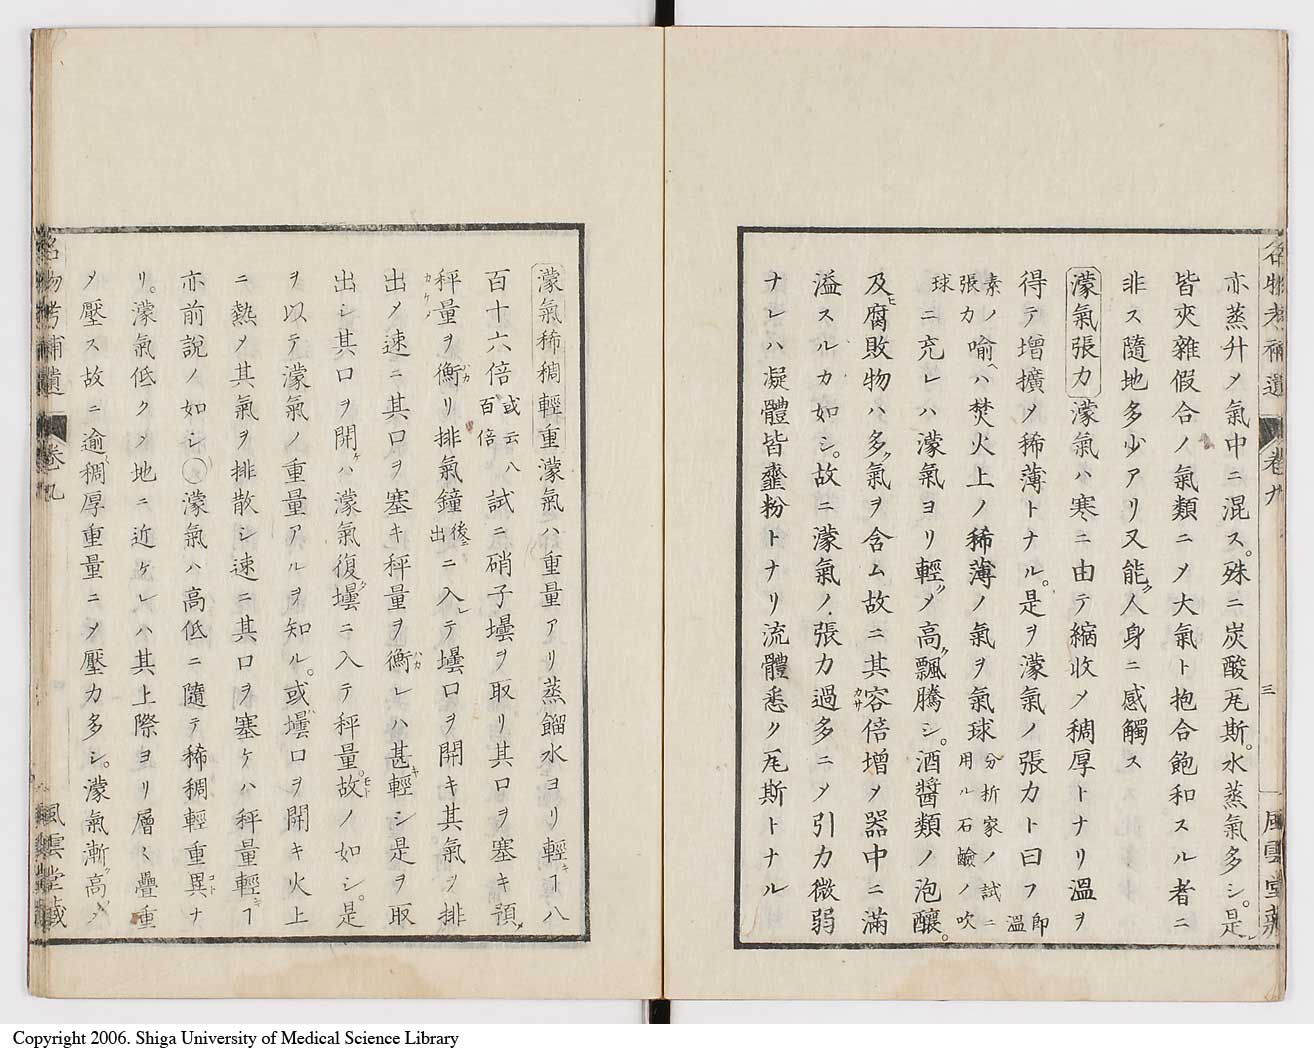 名物考補遺 卷九 三 風雲堂藏
亦蒸升メ氣中ニ混ス。殊ニ炭酸瓦斯。水蒸氣多シ。是レ
皆夾雜假合ノ氣類ニメ大氣ト抱合飽和スル者ニ
非ス隨地多少アリ又能ク人身ニ感觸ス
濛氣張力 濛氣ハ寒ニ由テ縮收メ稠厚トナリ溫ヲ
得テ増擴メ稀薄トナル。是ヲ濛氣ノ張力ト曰フ 即溫
素ノ張力 喻ヘハ焚火上ノ稀薄ノ氣ヲ氣球 分析家ノ試ニ用ル石鹼ノ吹
球 ニ充レハ濛氣ヨリ輕クメ高ク飄騰シ。酒醬類ノ泡釀。
及ヒ腐敗物ハ多ク氣ヲ含ム故ニ其容カサ倍增メ器中ニ滿
溢スルカ如シ。故ニ濛氣ノ張力過多ニメ引力微弱
ナレハ凝體皆虀粉トナリ流體悉ク瓦斯トナル
濛氣稀稠輕重 濛氣ハ重量アリ蒸餾水ヨリ輕キヿ八
百十六倍 或云八百倍 試ニ硝子壜ヲ取リ其口ヲ塞キ預メ
秤量ヲ衡リ排氣鐘 後ニ出 ニ入レテ壜口ヲ開キ其氣ヲ排
出メ速ニ其口ヲ塞キ秤量ヲ衡ハカレハ甚輕シ是ヲ取
出シ其口ヲ開ケハ濛氣復タ壜ニ入テ秤量。故モトノ如シ。是
ヲ以テ濛氣ノ重量アルヲ知ル。或ハ壜口ヲ開キ火上
ニ熱メ其氣ヲ排散シ速ニ其口ヲ塞ケハ秤量輕キヿ
亦前說ノ如シ○濛氣ハ高低ニ隨テ稀稠輕重異コトナ
リ。濛氣低クメ地ニ近ケレハ其上際ヨリ層々疊重
メ壓ス故ニ逾稠厚重量ニメ壓力多シ。濛氣漸ク高ク
名物考補遺 卷九 風雲堂藏
Copyright 2006. Shiga University of Medical Science Library